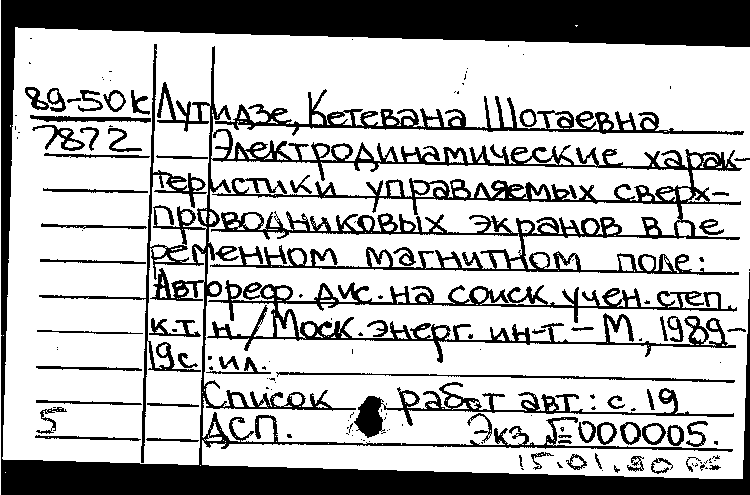 89-50к Лутидзе, Кетевана Шотаевна.
7872 Электродинамические харак-
теристики управляемых сверх-
проводниковых экранов в пе
ременном магнитном поле:
Автореф. дис. на соиск. учен. степ.
к.т.н. / Моск. энерг. ин-т. - М., 1989 -
19с.: ил.
Список работ авт.: с. 19.
5 ДСП. Экз. № 000005.
15.01.90